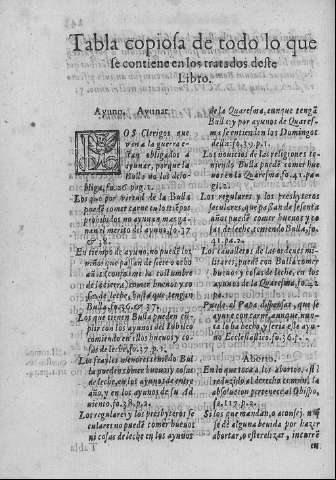 Tabla copiosa de todo lo que
se contiene en los tratados deste
Libro.
Ayuno. Ayunar.
LOS Clerigos que
van a la guerra es-
tan obligados a
ayunar, porque la
Bulla no los deso-
bliga, fo. pag. 1.
Los que por virtud de la Bulla
puedē comer carne en los tiēpos
prohibidos no ayunan, mas ga-
nen el merito del ayuno. fo. 37
& 38.
En tiempo de ayuno, no puedē los
niños que passan de siete o ocho
años (conforme a la costumbre
de la tierra) comer huevos y co-
sas de leche, hasta que tengan
Bulla. fo.
Los que tienen Bulla pueden cu-
plir con los ayunos del Iubileo
comiendo en ellos huevos y co-
sas de leche. fo. 37. p. 1.
Los frayles menores teniendo Bul
la pueden comer huevos y cosas
de leche, en los ayunos de entre
año, y en los ayunos de su Ad
uiento. fo. 38. p. 2.
Los regulares y los presbyteros se
culares no puedē comer huevos
ni cosas de leche en los ayunos
de la Quaresma, aunque tengā
Bulla: y por ayunos de Quares-
ma se entienden los Domingos
della. fo. 39. p. 1.
Los nouicios de las religiones te-
niendo Bulla puedē comer hue
uos en la Quaresma. fo. 41. pa-
gi. 2.
Los regulares y los presbyteros
seculares, que passan de sesenta
años puedē comer huevos y co-
sas de leche, teniendo Bulla, fo.
41. pa. 2.
Los caualleros de las ordenes mi-
litares; puedē con Bulla comer
huevos y cosas de leche, en los
ayunos de la Quaresma. fo. 42
pa. 2.
Puede el Papa dispensar, que se
ayune con carne, aunque nun-
ca lo ha hecho, y seria esse ayu-
no Ecclesiastico. fo. 36. p. 1.
Aborto.
En lo que toca a los abortos, esta
reduzido al derecho comun, la
absolucion pertenece al Obispo,
fo. 117. p. 2.
Si los que mandan, o aconsejā que
se dè alguna beuida por hazer
abortar, o esterelizar, incurrē
en